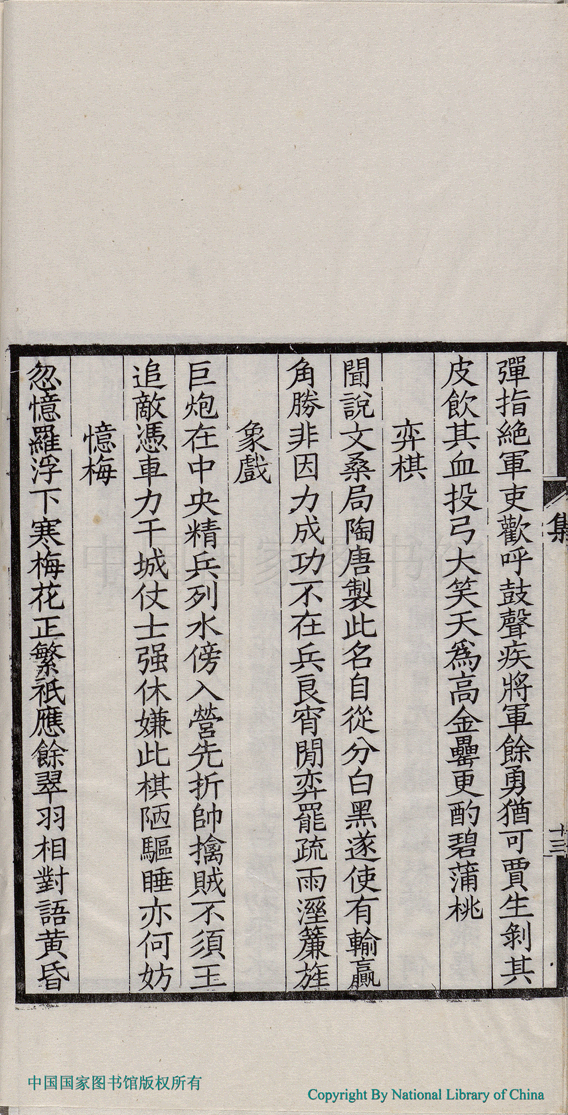 集
十三
彈指絶軍吏歡呼鼓聲疾將軍餘勇猶可賈生剝其
皮飲其血投弓大笑天爲高金罍更酌碧蒲桃
弈棋
聞說文桑局陶唐製此名自從分白黑遂使有輸贏
角勝非因力成功不在兵良宵閒弈罷疏雨溼簾旌
象戲
巨炮在中央精兵列水傍入營先折帥擒賊不須王
追敵憑車力干城仗士强休嫌此棋陋驅睡亦何妨
憶梅
忽憶羅浮下寒梅花正繁祇應餘翠羽相對語黄昏
中国国家图书馆版权所有
Copyright By National Library of China